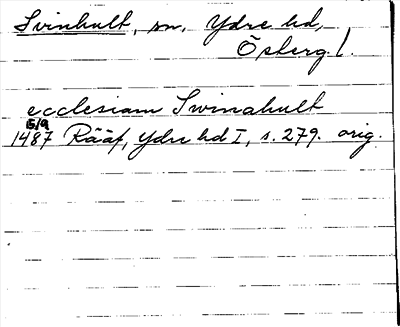 Svinhult, sn, Ydre hd,
Österg. l.
ecclesiam Swinahult
15/9
1487 Rääf, Ydre hd I, s. 279. orig.